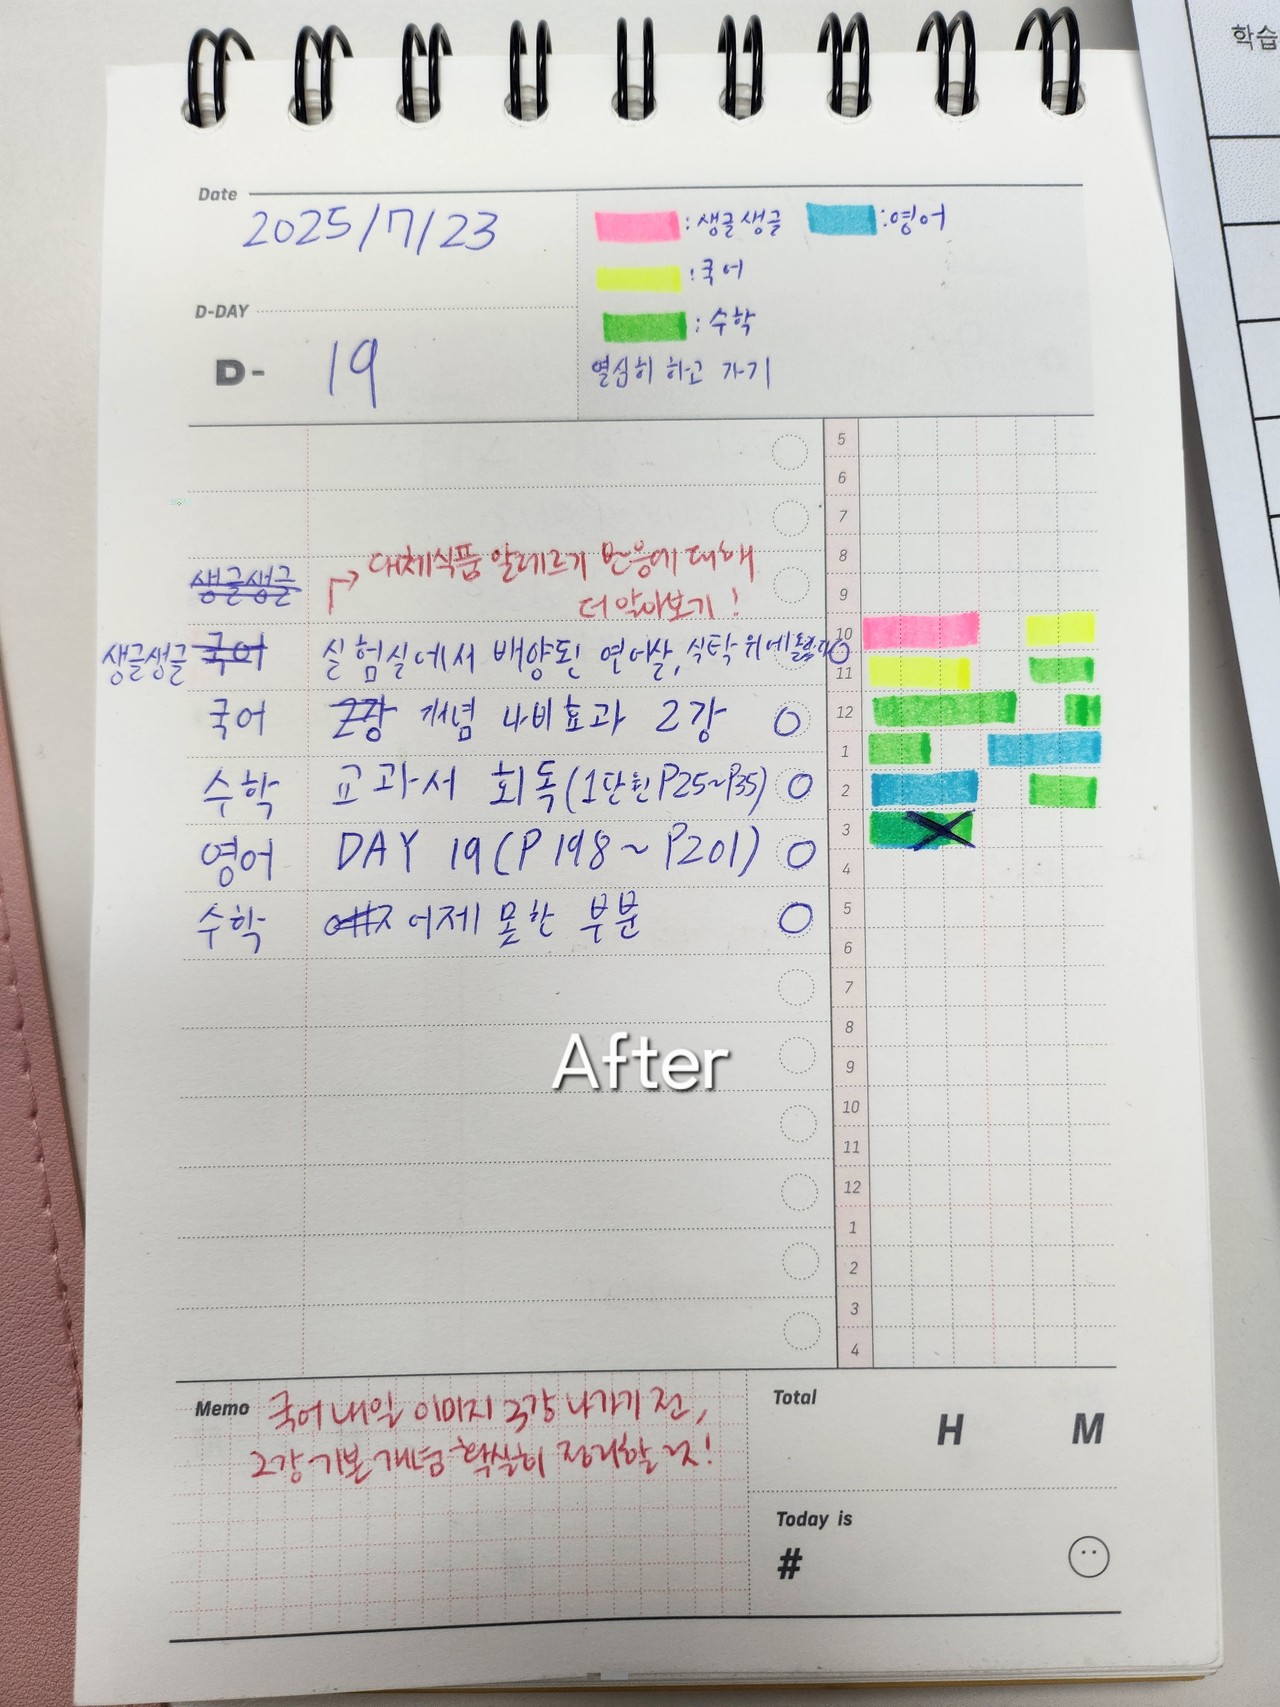 학습
Date
2025/7/23
: 생글생글 : 영어
: 국어
: 수학
열심히 하고 가기
D-DAY
D- 19
대체식품 알레르기 반응에 대해
더 알아보기 !
생글생글
생글생글 국어 실험실에서 배양된 연어살, 식탁 위에
국어 2강 개념 나비효과 2강
수학 교과서 회독 (1단원 P25~P35)
영어 DAY 19 (P198 ~ P201)
수학 어제 못한 부분
5
6
7
8
9
10
11
12
1
2
3
4
5
6
7
8
9
10
11
12
1
2
3
4
After
Memo 국어 내일 이미지 3강 나가기 전,
2강 기본 개념 확실히 정리할 것!
Total
H M
Today is
#